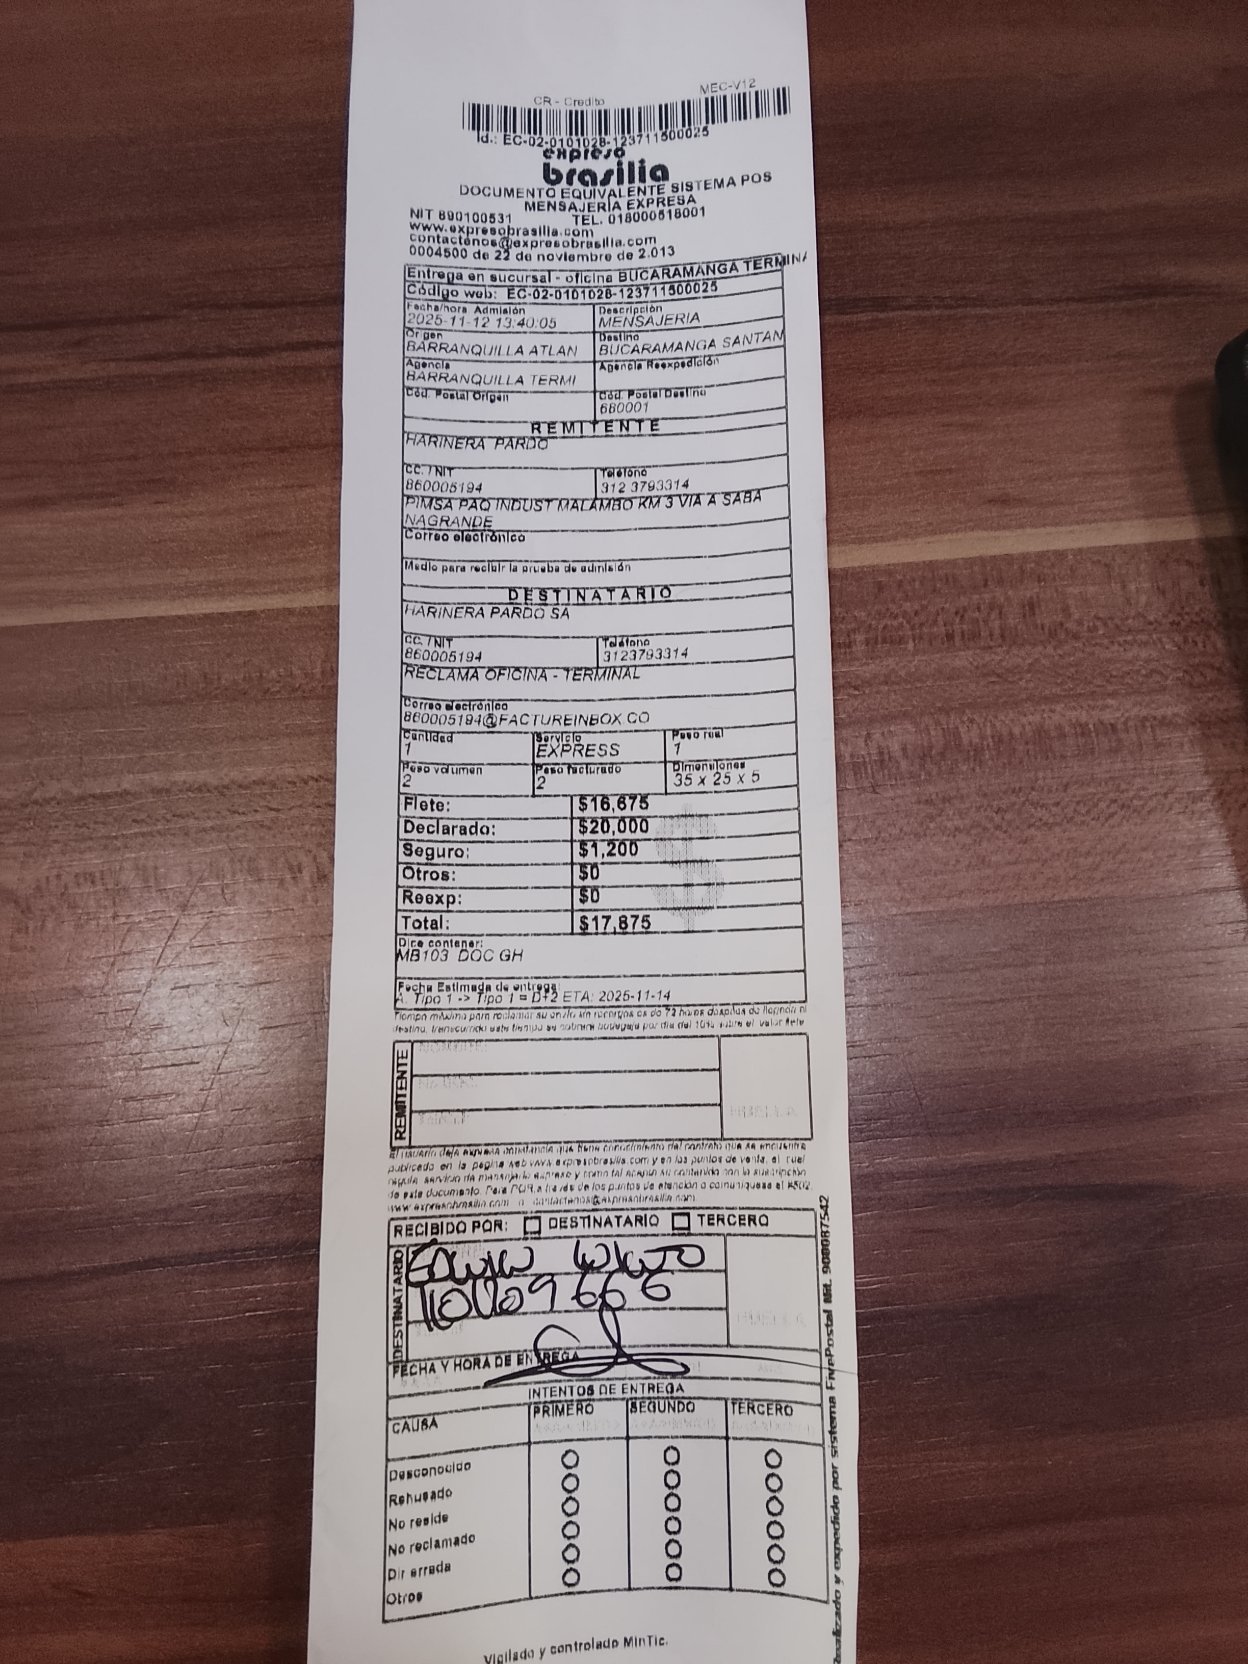 CR - Credito MEC-V12
Id.: EC-02-0101028-123711500025
expreso
brasilia
DOCUMENTO EQUIVALENTE SISTEMA POS
MENSAJERÍA EXPRESA
NIT 890100531 TEL. 018000518001
www.expresobrasilia.com
contactenos@expresobrasilia.com
0004500 de 22 de noviembre de 2.013
Entrega en sucursal - oficina BUCARAMANGA TERMINA
Código web: EC-02-0101028-123711500025
Fecha/hora Admisión Descripción
2025-11-12 13:40:05 MENSAJERIA
Origen Destino
BARRANQUILLA ATLAN BUCARAMANGA SANTAN
Agencia Agencia Reexpedición
BARRANQUILLA TERMI
Cód. Postal Origen Cód. Postal Destino
680001
REMITENTE
HARINERA PARDO
CC. / NIT Teléfono
860005194 312 3793314
PIMSA PAQ INDUST MALAMBO KM 3 VIA A SABA
NAGRANDE
Correo electrónico
Medio para recibir la prueba de admisión
DESTINATARIO
HARINERA PARDO SA
CC. / NIT Teléfono
860005194 3123793314
RECLAMA OFICINA - TERMINAL
Correo electrónico
860005194@FACTUREINBOX.CO
Cantidad Servicio Peso real
1 EXPRESS 1
Peso volumen Peso facturado Dimensiones
2 2 35 x 25 x 5
Flete: $16,675
Declarado: $20,000
Seguro: $1,200
Otros: $0
Reexp: $0
Total: $17,875
Dice contener:
MB103 DOC GH
Fecha Estimada de entrega:
A. Tipo 1 -> Tipo 1 = D+2 ETA: 2025-11-14
Tiempo máximo para reclamar su envío sin recargos es de 72 horas después de llegada al
destino, transcurrido este tiempo se cobrará bodegaje por día del 10% sobre el valor flete
REMITENTE
El usuario deja expresa constancia que tiene conocimiento del contrato que se encuentra
publicado en la pagina web www.expresobrasilia.com y en los puntos de venta, el cual
regula servicio de mensajería expresa y como tal acepta su contenido con la suscripción
de este documento. Para PQR a través de los puntos de atención o comuniquese al #502
www.expresobrasilia.com o contactenos@expresobrasilia.com
RECIBIDO POR: DESTINATARIO TERCERO
DESTINATARIO
FECHA Y HORA DE ENTREGA
INTENTOS DE ENTREGA
CAUSA PRIMERO SEGUNDO TERCERO
Desconocido
Rehusado
No reside
No reclamado
Dir errada
Otros
Realizado y expedido por sistema FivePostal Nit. 900087542
Vigilado y controlado MinTic.